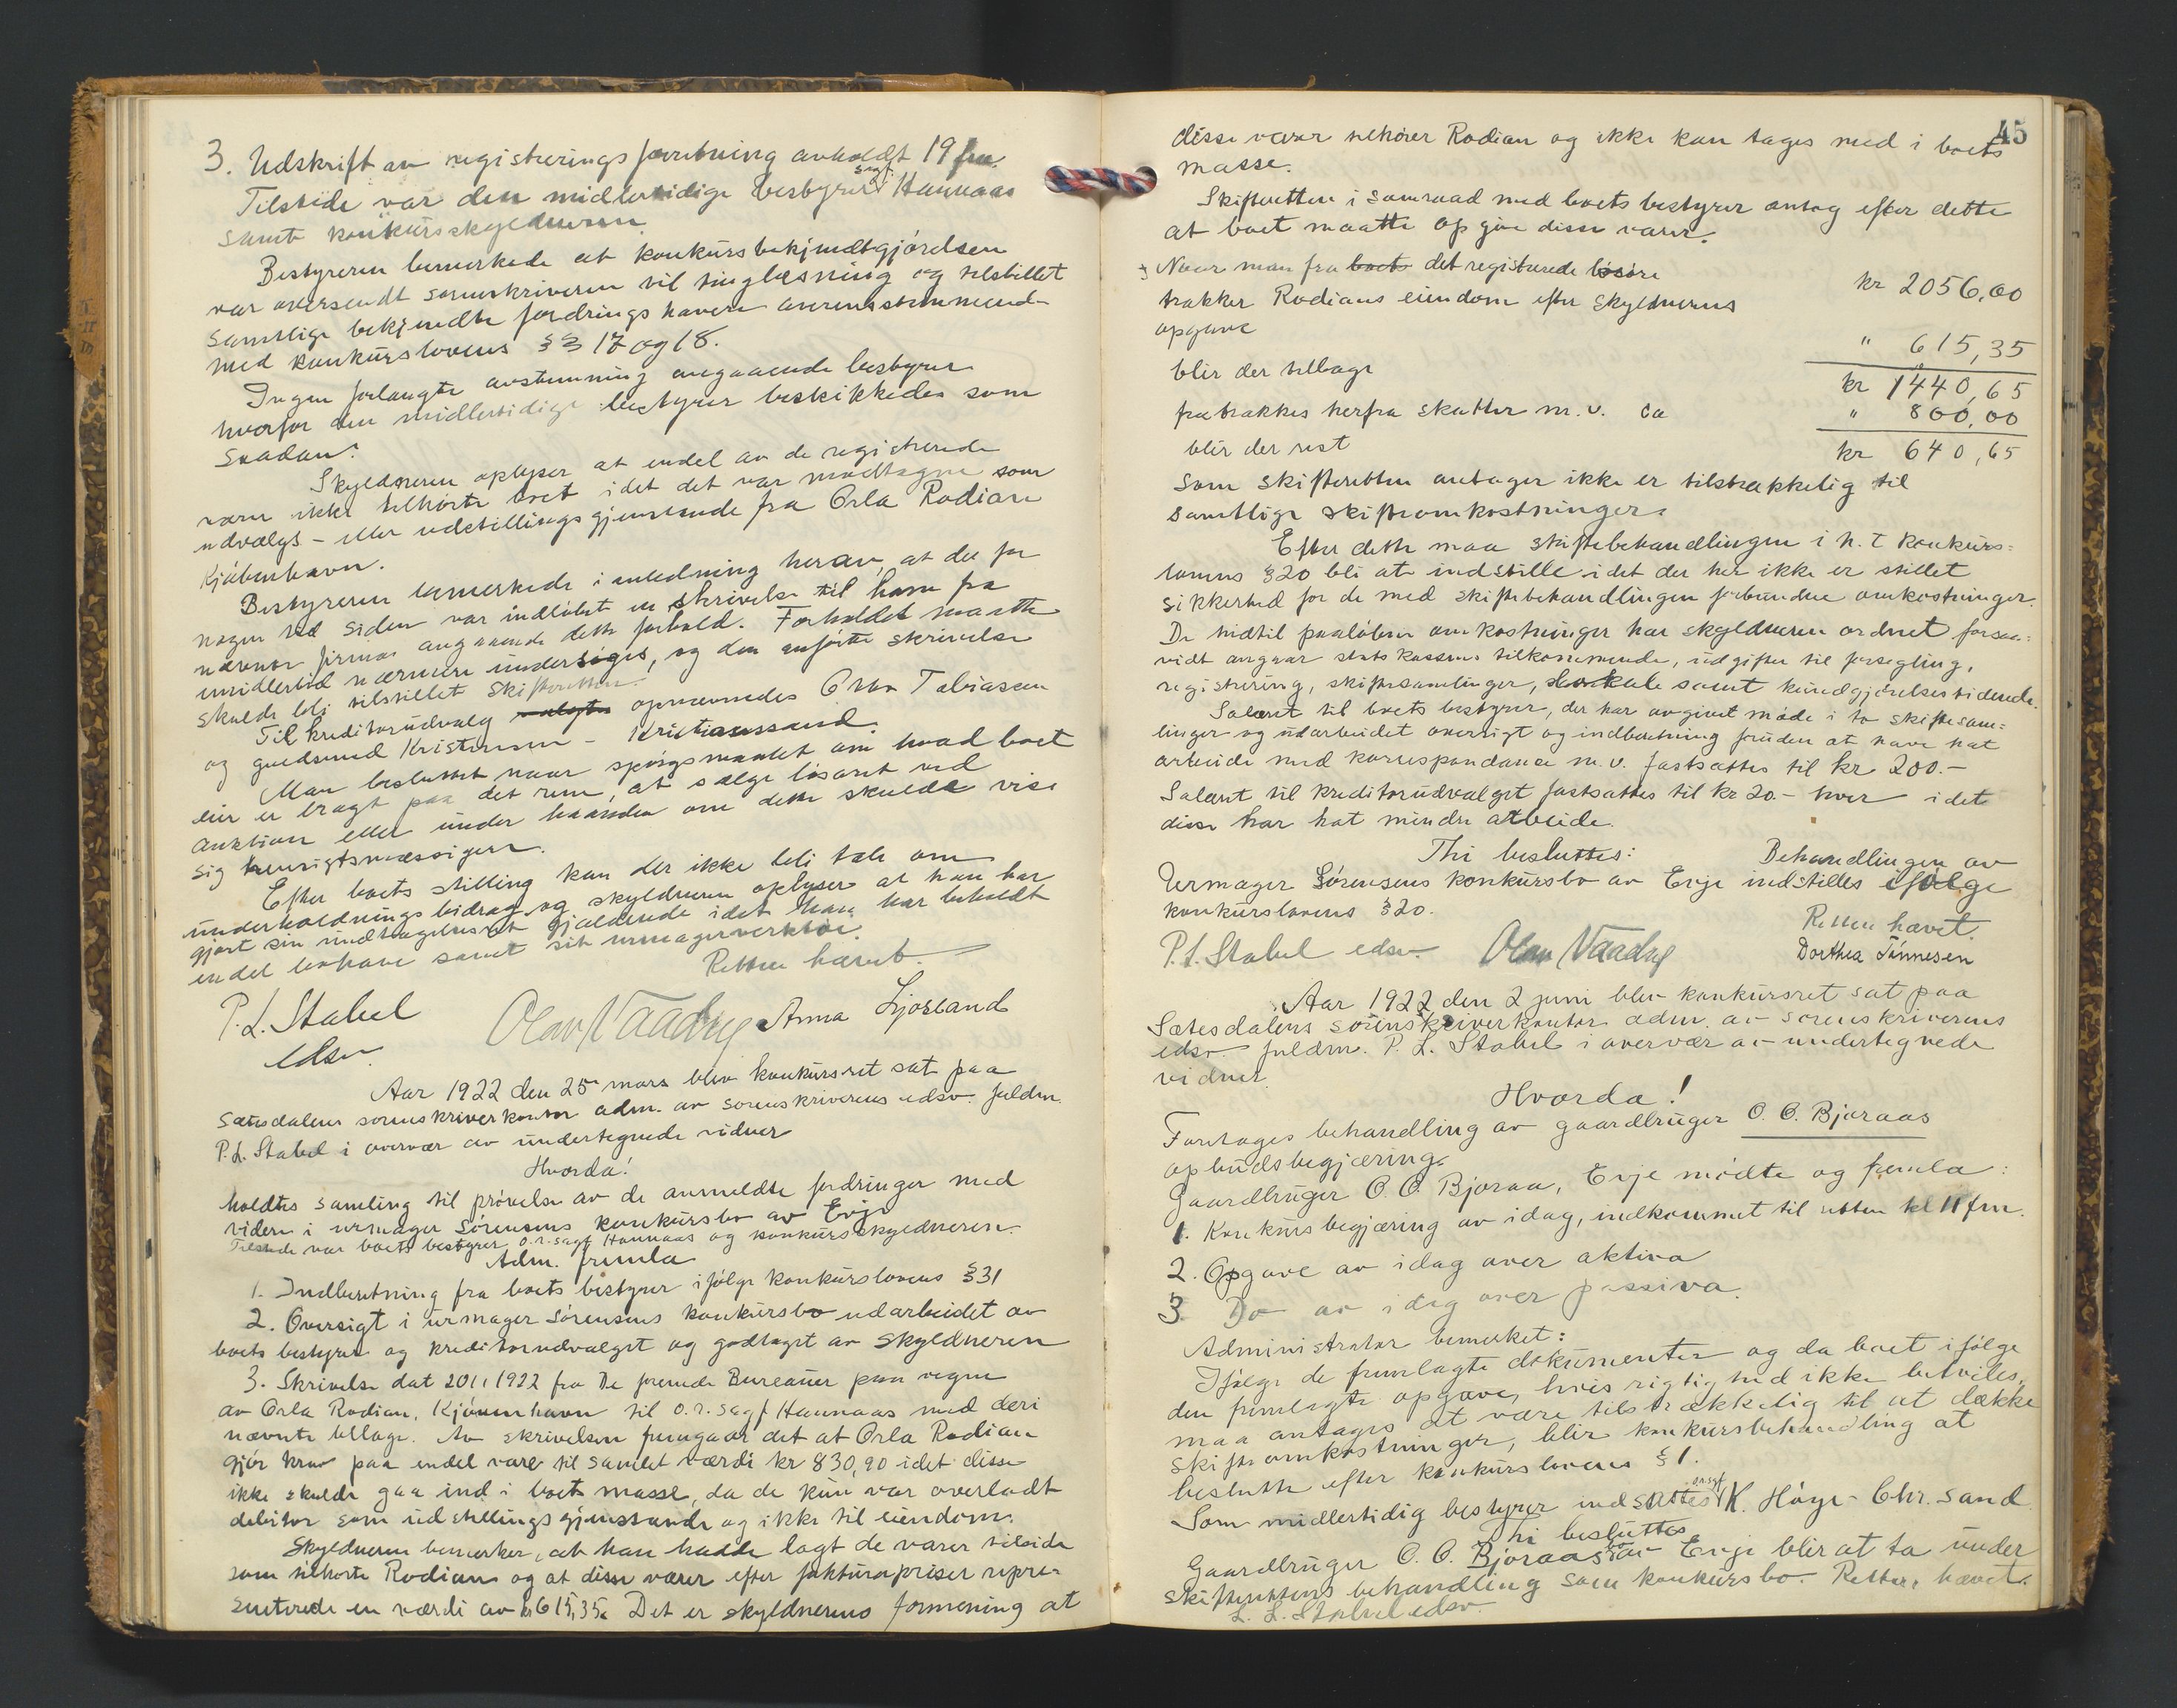 3. Udskrift av registreringsforretning avholdt 19 fm.
Tilstede var den midlertidige bestyrer sagf. Hannaas
samt konkursskyldneren.
Bestyreren bemerkede at konkursbekjendtgjørelsen
var oversendt sorenskriveren til tinglæsning og tilstillet
samtlige bekjendte fordringshavere overensstemmende
med konkurslovens §§ 17 og 18.
Ingen forlangte avstemning angaaende bestyrer
hvorfor den midlertidige bestyrer beskikkedes som
saadan.
Skyldneren oplyser at endel av de registrerede
varer ikke tilhørte boet idet det var mottagne som
udvalgs- eller udstillingsgjenstande fra Orla Rodian
Kjøbenhavn.
Bestyreren bemerkede i anledning herav, at der for
nogen tid siden var indløbet en skrivelse til ham fra
nævnte firma angaaende dette forhold. Forholdet maatte
imidlertid nærmere undersøges, og den anførte skrivelse
skulde bli tilstillet skifteretten.
Til kreditorudvalg valgtes opnævnedes Otto Tobiassen
og Gudmund Kristensen - Kristianssand.
Man besluttet naar spørgsmaalet om hvad boet
eier er bragt paa det rene, at sælge løsøret ved
auktion eller under haanden om dette skulde vise
sig hensigtsmæssigere.
Efter boets stilling kan der ikke bli tale om
underholdningsbidrag og skyldneren oplyser at han har
gjort sin undtagelsesret gjældende idet han har beholdt
endel indbo samt sit urmagerverktøi.
Retten hævet.
P. L. Stabel Olav Vaadny Anna Ljosland
edsv.
Aar 1922 den 25 mars blev konkursret sat paa
Sætesdalens sorenskriverkontor adm. av sorenskriverens edsv. fuldm.
P. L. Stabel i overvær av undertegnede vidner
Hvorda!
holdtes samling til prøvelse av de anmeldte fordringer med
videre i urmager Sørensens konkursbo av Evje
Tilstede var boets bestyrer o.r.sagf Hannaas og konkursskyldneren.
Adm. fremla
1. Indberetning fra boets bestyrer ifølge konkurslovens § 31
2. Oversigt i urmager Sørensens konkursbo udarbeidet av
boets bestyrer og kreditorudvalget og godtaget av skyldneren
3. Skrivelse dat 20/1 1922 fra De forenede Bureauer paa vegne
av Orla Rodian, Kjøvenhavn til o.r.sagf Hannaas med deri
nævnte bilage. Av skrivelsen fremgaar det at Orla Rodian
gjør krav paa endel varer til samlet værdi kr 830,90 idet disse
ikke skulde gaa ind i boets masse, da de kun var overladt
debitor som udstillingsgjenstande og ikke til eiendom.
Skyldneren bemerker, at han hadde lagt de varer tilside
som tilhørte Rodian og at disse varer efter fakturapriser repre-
senterede en værdi av kr 615,35. Det er skyldnerens formening at
45
disse varer tilhører Rodian og ikke kan tages med i boets
masse.
Skifteretten i samraad med boets bestyrer antog efter dette
at boet maatte opgive disse varer.
Naar man fra boets det registrerede løsøre kr 2056,00
trækker Rodians eiendom efter skyldnerens
opgave " 615,35
blir der tilbage kr 1440,65
fratrækkes herfra skatter m.v. ca " 800,00
blir der rest kr 640,65
som skifteretten antager ikke er tilstrækkelig til
samtlige skifteomkostninger.
Efter dette maa skiftebehandlingen i h.t konkurs-
lovens § 20 bli at indstille idet der her ikke er stillet
sikkerhed for de med skiftebehandlingen forbundne omkostninger.
De hidtil paaløbne omkostninger har skyldneren ordnet forsaa-
vidt angaar statskassens tilkommende, udgifter til forsegling,
registrering, skiftesamlinger, samt kundgjørelsestidende.
Salæret til boets bestyrer, der har avgivet møde i to skiftesam-
linger og udarbeidet oversigt og indberetning foruden at have hat
arbeide med korrespondance m.v. fastsættes til kr 200.-
Salæret til kreditorudvalget fastsættes til kr 20.- hver idet
disse har hat mindre arbeide.
Thi besluttes:
Behandlingen av
Urmager Sørensens konkursbo av Evje indstilles ifølge
konkurslovens § 20.
Retten hævet.
P. L. Stabel edsv. Olav Vaadny Dorthea Tønnesen
Aar 1922 den 2 juni blev konkursret sat paa
Sætesdalens sorenskriverkontor adm. av sorenskriverens
edsv. fuldm. P. L. Stabel i overvær av undertegnede
vidner.
Hvorda!
Foretages behandling av gaardbruger O. O. Bjoraas
opbudsbegjæring.
Gaardbruger O. O. Bjoraa, Evje mødte og fremla:
1. Konkursbegjæring av idag, indkommet til retten kl 11 fm.
2. Opgave av idag over aktiva
3 Do av idag over passiva.
Administrator bemerket:
Ifølge de fremlagte dokumenter og da boet ifølge
den fremlagte opgave, hvis rigtighed ikke betviles,
maa antages at være tilstrækkelig til at dække
skifteomkostninger, blir konkursbehandling at
beslutte efter konkurslovens § 1.
Som midlertidig bestyrer indsættes orsgf K. Høye - Chr.sand
Thi besluttes
Gaardbruger O. O. Bjoraas bo av Evje blir at ta under
skifterettens behandling som konkursbo. Retten hævet.
P. L. Stabel edsv.